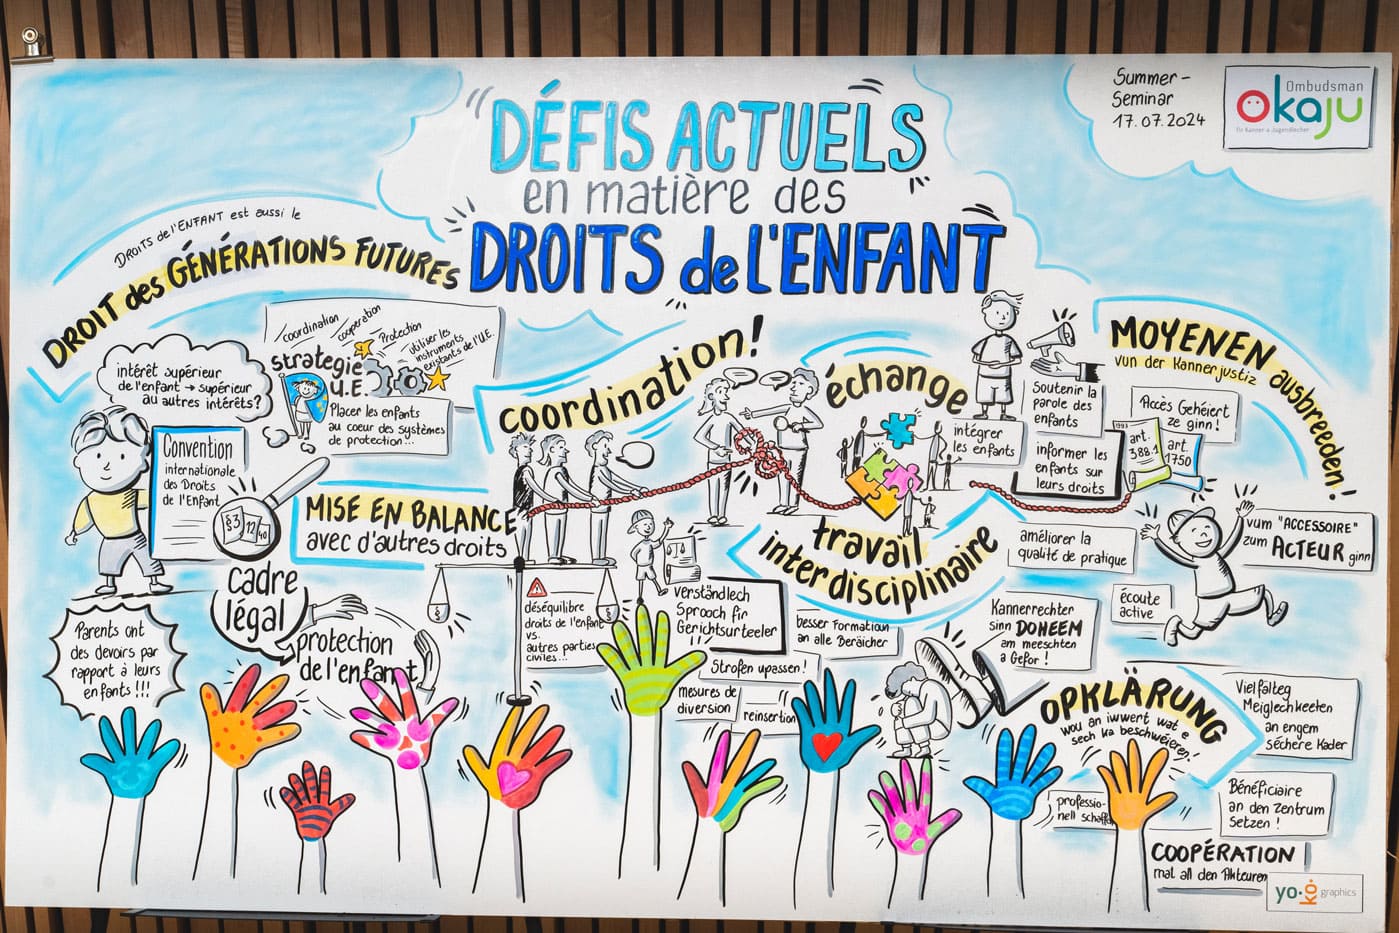 DÉFIS ACTUELS
en matière des
DROITS de L'ENFANT
Summer-
Seminar
17.07.2024
Ombudsman
Okaju
fir Kanner a Jugendlecher
DROITS de l'ENFANT est aussi le
DROIT des GÉNÉRATIONS FUTURES
intérêt supérieur
de l'enfant → supérieur
au autres intérêts?
coordination
coopération
Protection
utiliser les
instruments
existants de l'U.E.
Stratégie
U.E.
Placer les enfants
au coeur des systèmes
de protection...
Convention
internationale
des Droits
de l'Enfant
§3
12
40
MISE EN BALANCE
avec d'autres droits
cadre
légal
protection
de l'enfant
Parents ont
des devoirs par
rapport à leurs
enfants !!!
§
§
déséquilibre
droits de l'enfant
vs.
autres parties
civiles...
coordination!
échange
intégrer
les enfants
Soutenir la
parole des
enfants
informer les
enfants sur
leurs droits
travail
interdisciplinaire
verständlech
Sprooch fir
Gerichtsurteeler
besser Formation
an alle Beräicher
Strofen upassen!
mesures de
diversion
reinsertion
MOYENEN ausbreeden!
vun der Kannerjustiz
Accès Gehéiert
ze ginn!
1993
art.
388.1
art.
1750
améliorer la
qualité de pratique
écoute
active
vum "ACCESSOIRE"
zum ACTEUR ginn
Kannerrechter
sinn DOHEEM
am meeschten
a Gefor!
OPKLÄRUNG
wou an iwwert wat e
sech ka beschwéieren!
Vielfälteg
Méiglechkeeten
an engem
séchere Kader
Bénéficiaire
an den Zentrum
setzen!
professio-
nell schaffen
COOPÉRATION
mat all den Akteuren
yo.kó graphics